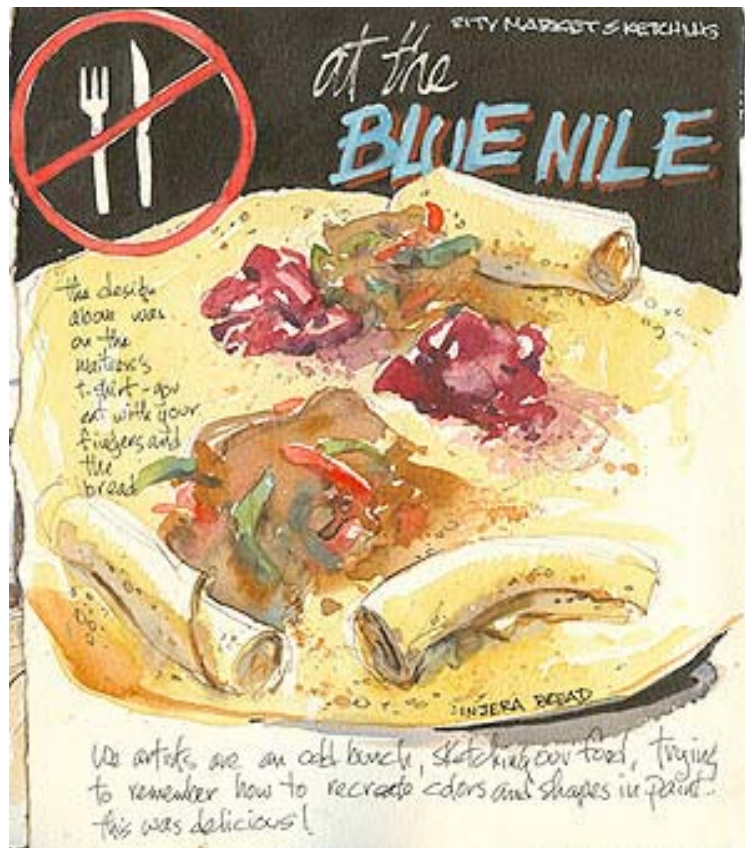 CITY MARKET SKETCHING
at the
BLUE NILE
the design
above was
on the
waitress's
t-shirt - you
eat with your
fingers and
the
bread
INJERA BREAD
We artists are an odd bunch, sketching our food, trying
to remember how to recreate colors and shapes in paint.
this was delicious!